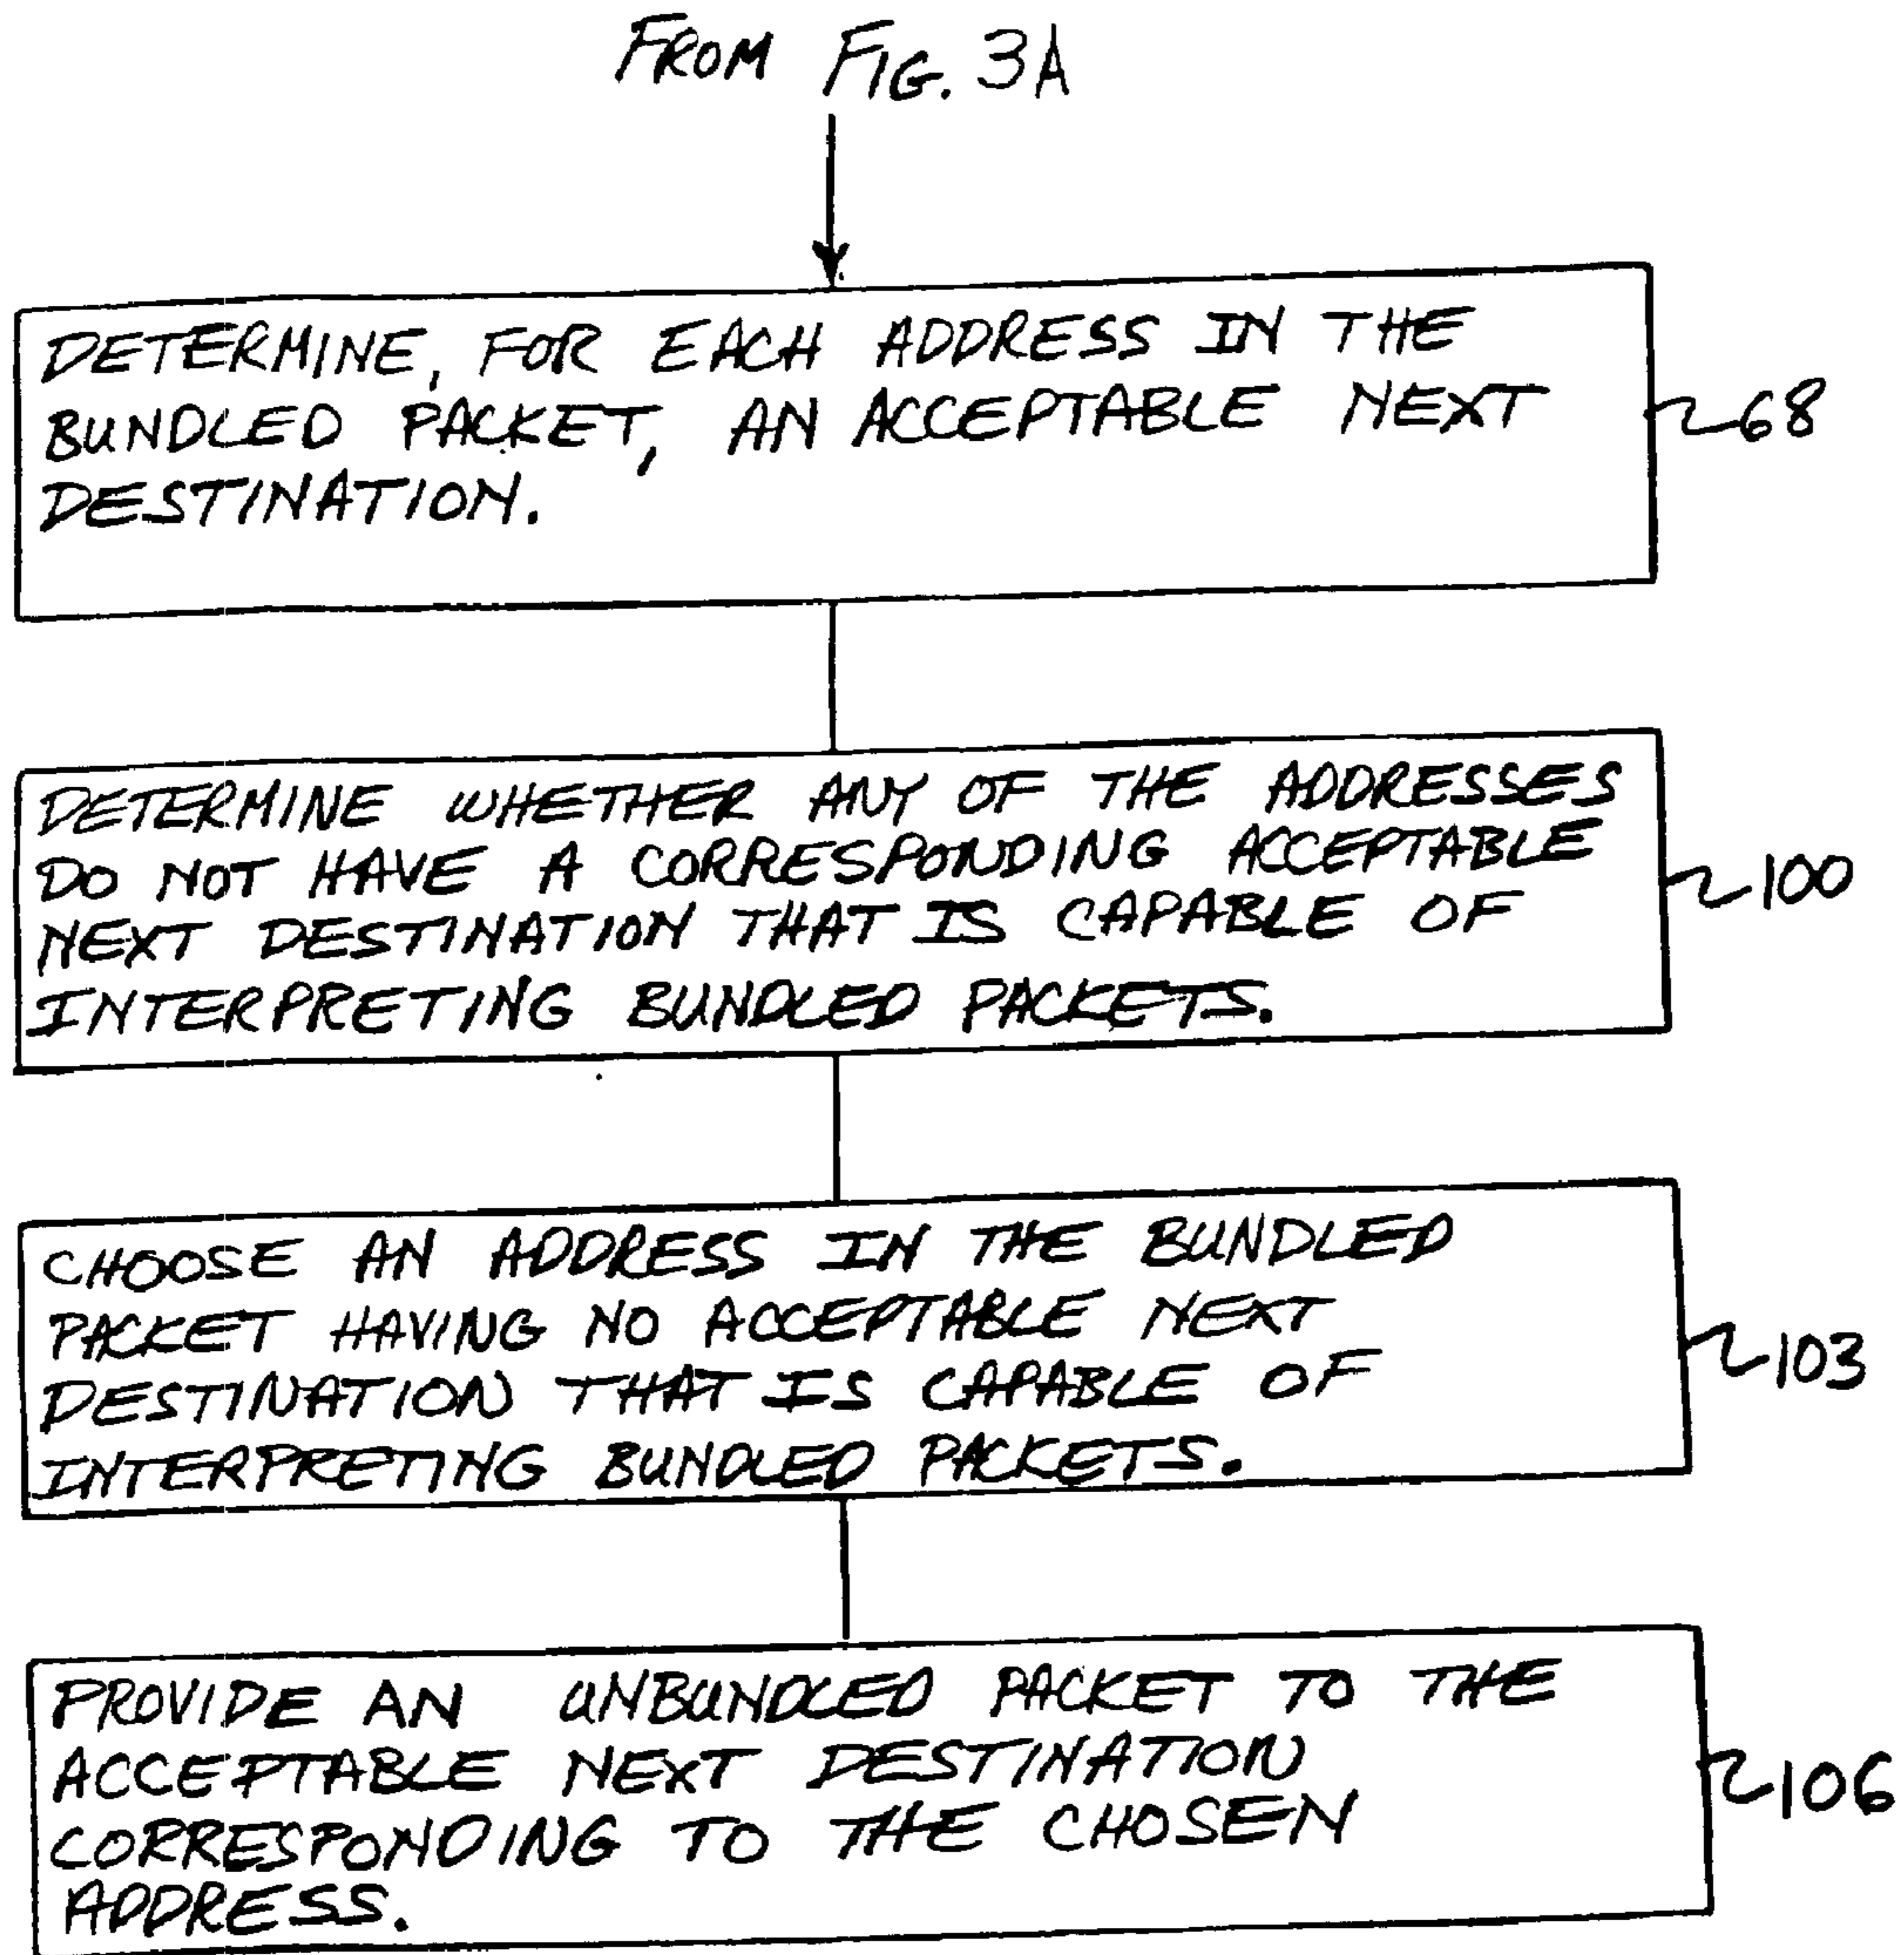 FROM FIG. 3A
DETERMINE, FOR EACH ADDRESS IN THE
BUNDLED PACKET, AN ACCEPTABLE NEXT
DESTINATION.
68
DETERMINE WHETHER ANY OF THE ADDRESSES
DO NOT HAVE A CORRESPONDING ACCEPTABLE
NEXT DESTINATION THAT IS CAPABLE OF
INTERPRETING BUNDLED PACKETS.
100
CHOOSE AN ADDRESS IN THE BUNDLED
PACKET HAVING NO ACCEPTABLE NEXT
DESTINATION THAT IS CAPABLE OF
INTERPRETING BUNDLED PACKETS.
103
PROVIDE AN UNBUNDLED PACKET TO THE
ACCEPTABLE NEXT DESTINATION
CORRESPONDING TO THE CHOSEN
ADDRESS.
106